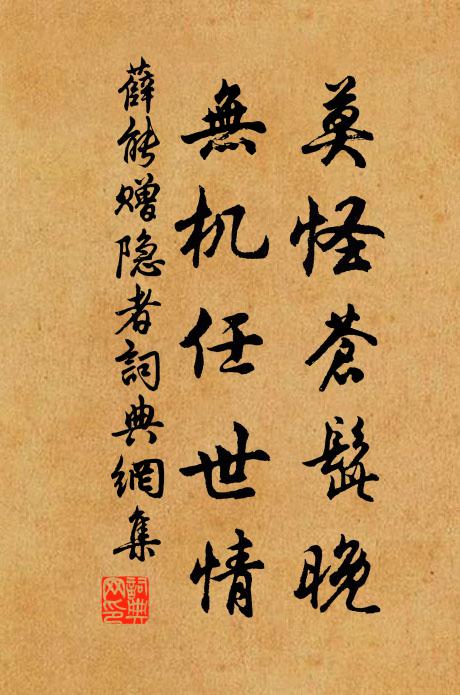 莫怪苍髭晚
無机任世情
薛能赠隐者詞典網集
詞典網印